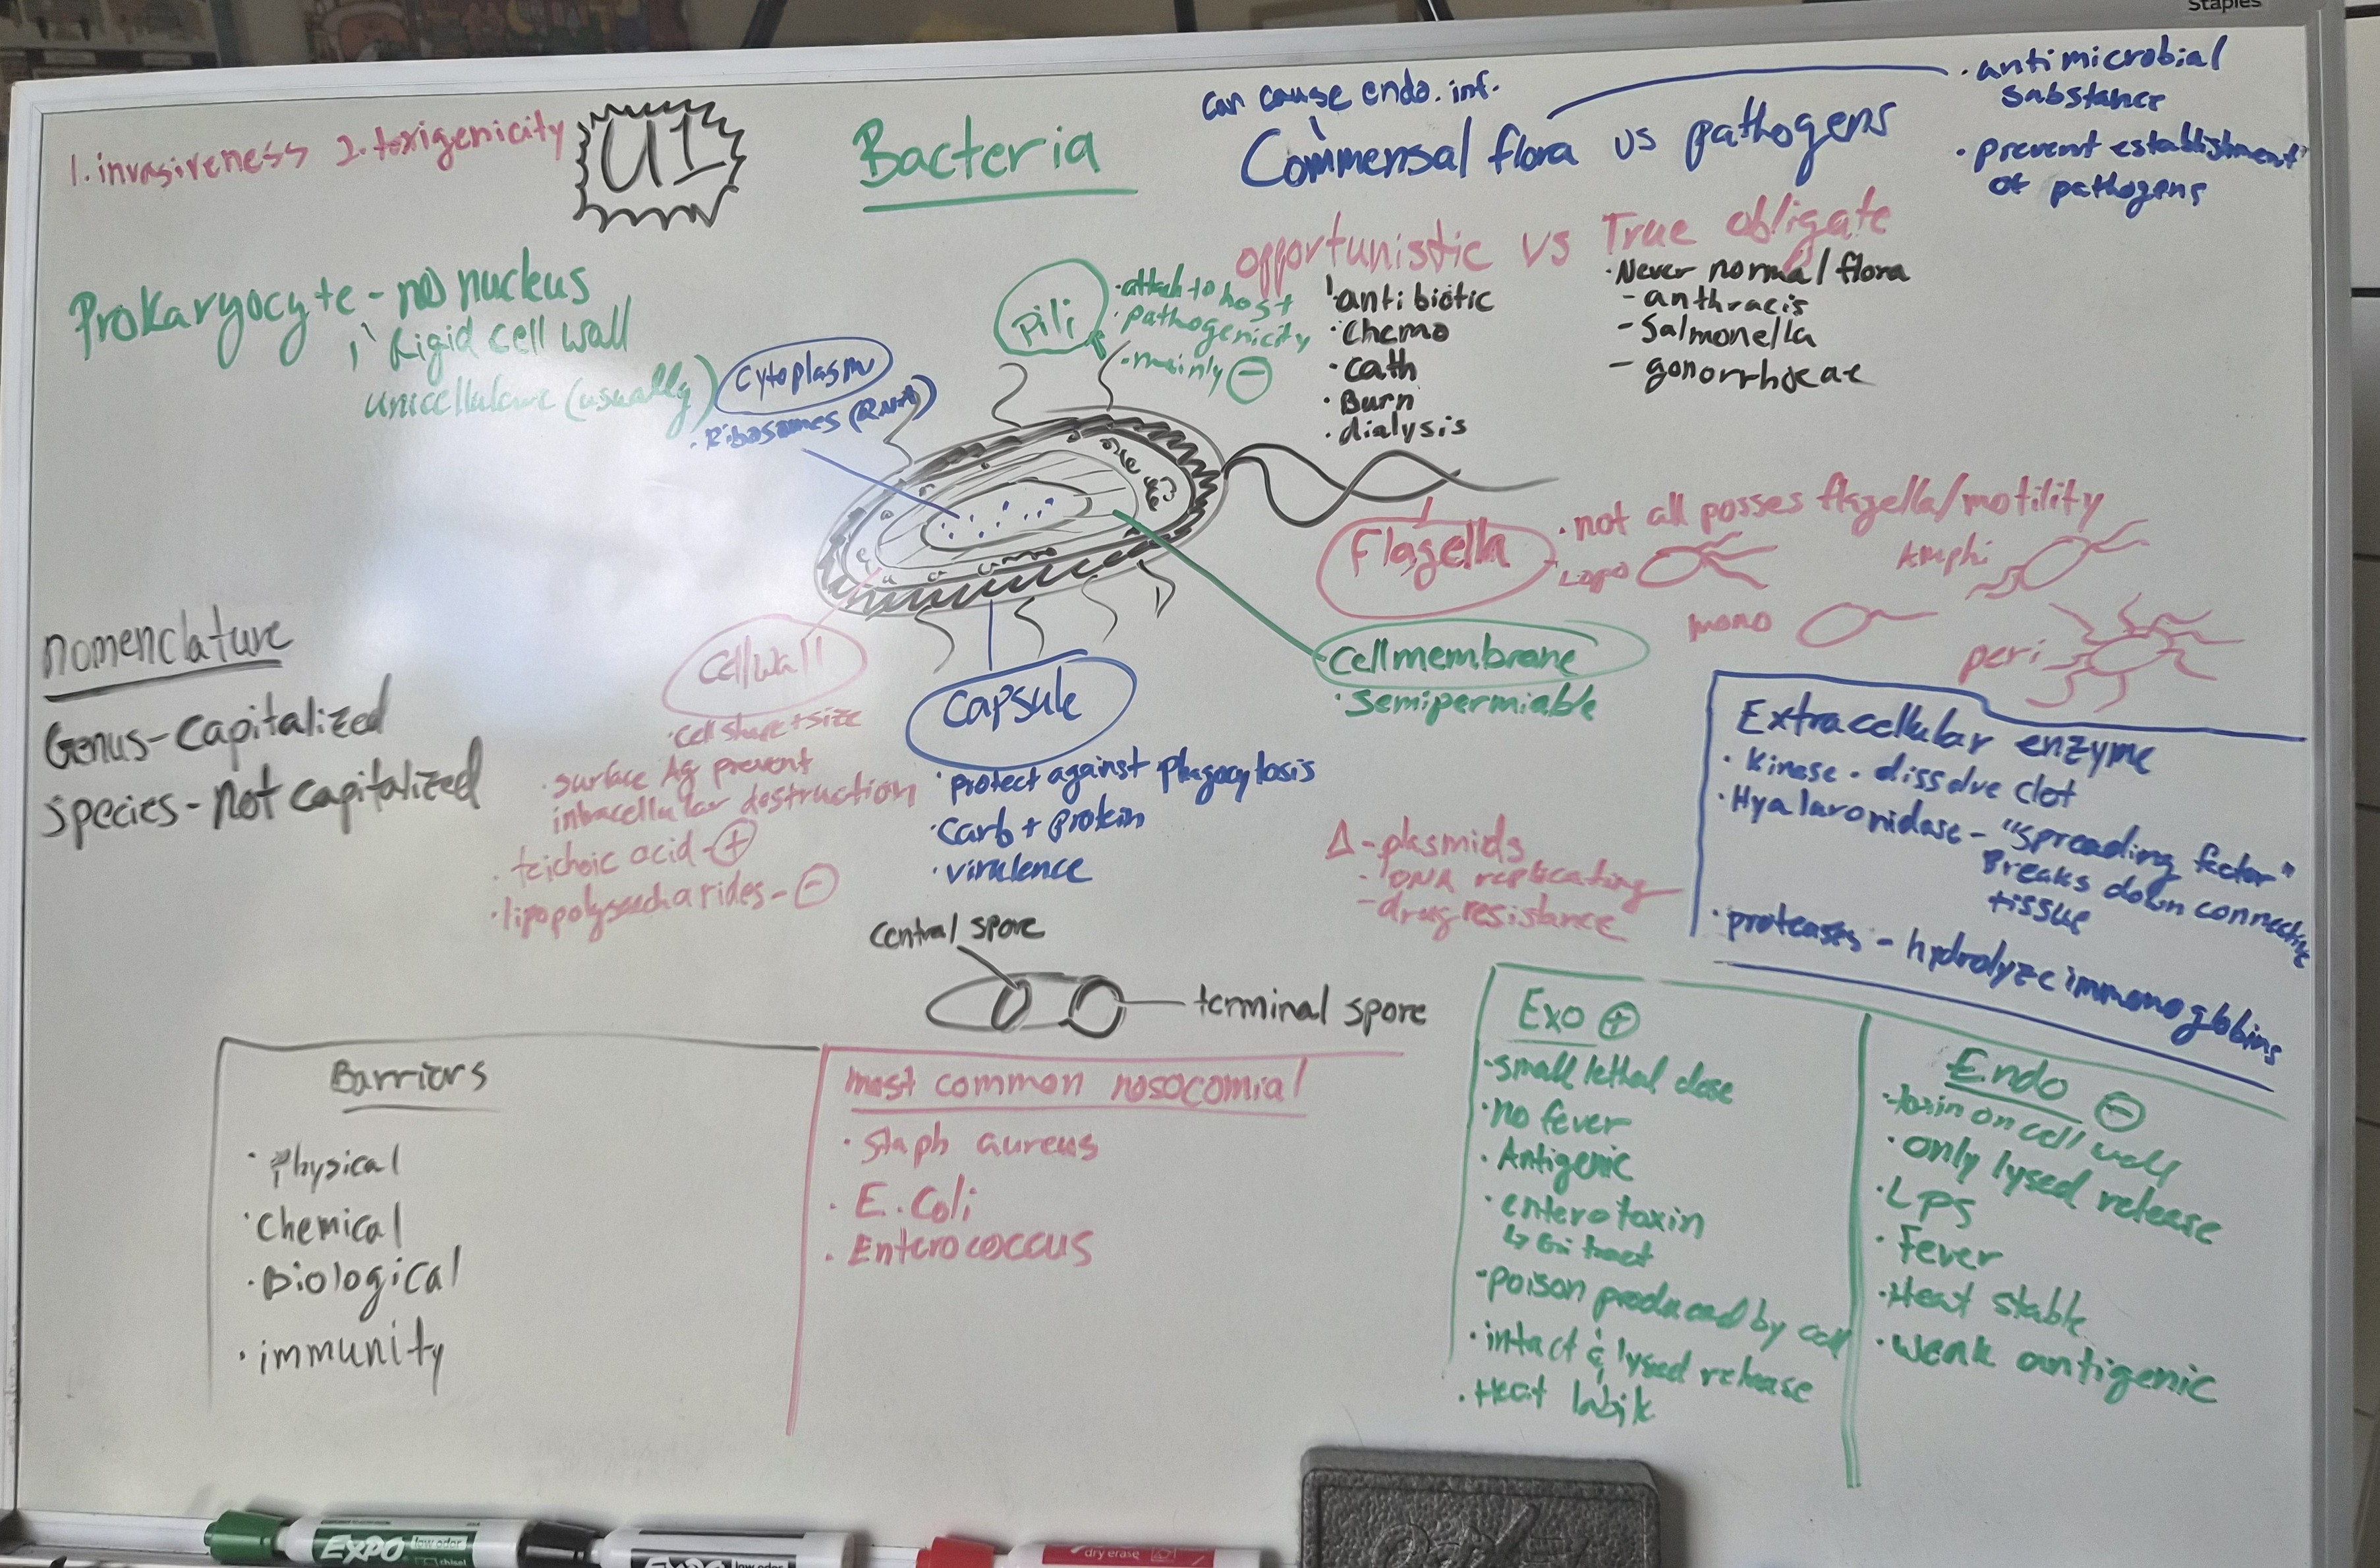 Staples
1. invasiveness 2. toxigenicity
U1
Bacteria
can cause endo. inf.
Commensal flora vs pathogens
· antimicrobial
substance
· prevent establishment
of pathogens
Prokaryocyte - no nucleus
rigid cell wall
unicellulare (usually)
Cytoplasm
· Ribosomes (RNA)
Pili
· attach to host
· pathogenicity
· mainly ⊖
opportunistic vs True obligate
· antibiotic
· chemo
· cath
· Burn
· dialysis
· Never normal flora
- anthracis
- Salmonella
- gonorrhoeae
Flagella
· not all posses flagella/motility
Lopo
Amphi
mono
peri
nomenclature
Genus - Capitalized
Species - Not Capitalized
Cell wall
· cell shape + size
· surface Ag prevent
intracellular destruction
· teichoic acid - ⊕
· lipopolysaccharides - ⊖
Capsule
· protect against phagocytosis
· carb + protein
· virulence
Cell membrane
· semipermiable
Δ - plasmids
- DNA replicating
- drug resistance
Extracellular enzyme
· kinase - dissolve clot
· Hyaluronidase - "spreading factor"
Breaks down connective
tissue
· proteases - hydrolyze immonoglobins
central spore
terminal spore
Barriors
· Physical
· Chemical
· Biological
· immunity
most common nosocomial
· Staph aureus
· E. Coli
· Enterococcus
Exo ⊕
· small lethal dose
· no fever
· Antigenic
· enterotoxin
↳ GI tract
· poison produced by cell
· intact & lysed release
· Heat labile
Endo ⊖
· toxin on cell wall
· only lysed release
· LPS
· Fever
· Heat stable
· weak antigenic
EXPO low odor
chisel
EXPO low odor
dry erase